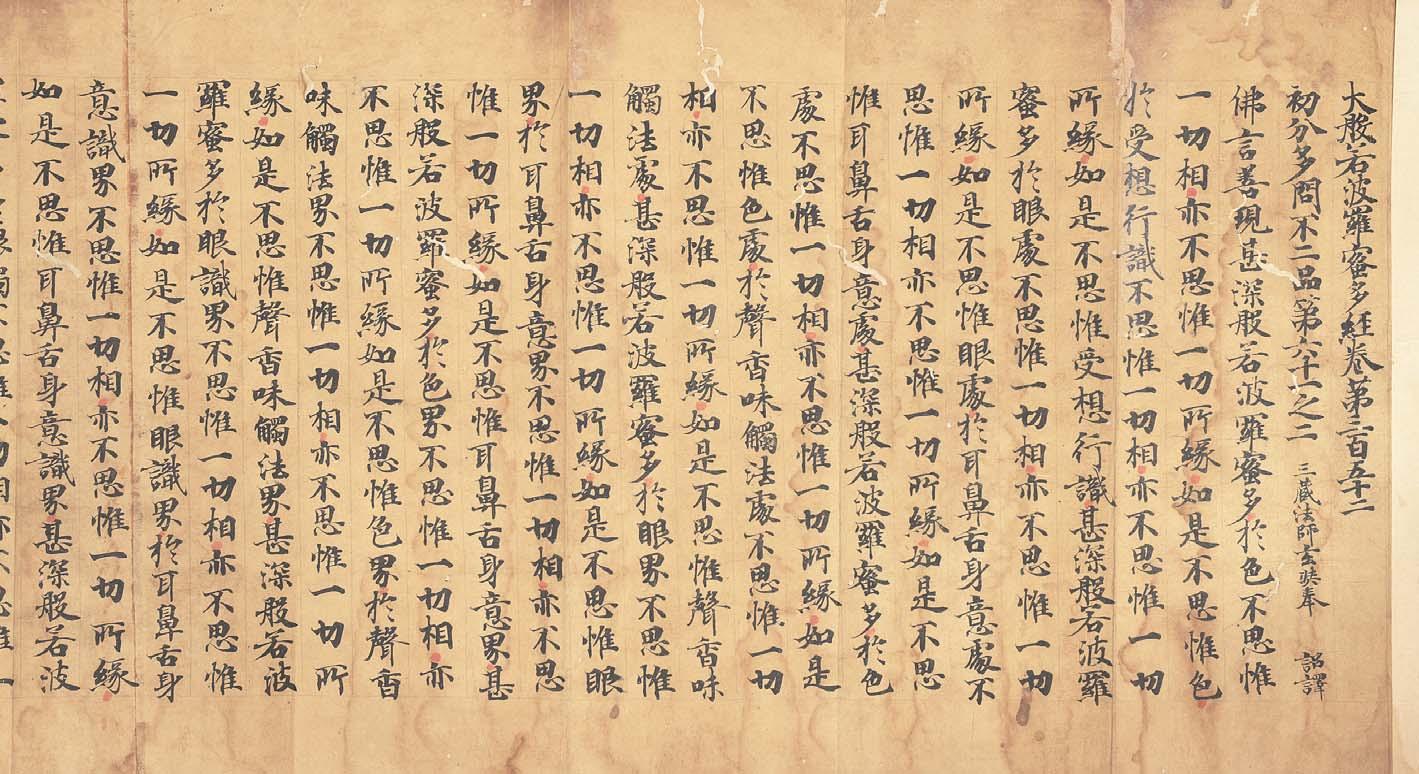 大般若波羅蜜多經卷第三百五十二
初分多問不二品第六十一之二 三藏法師玄奘奉 詔譯
佛言善現甚深般若波羅蜜多於色不思惟
一切相亦不思惟一切所緣如是不思惟色
於受想行識不思惟一切相亦不思惟一切
所緣如是不思惟受想行識甚深般若波羅
蜜多於眼處不思惟一切相亦不思惟一切
所緣如是不思惟眼處於耳鼻舌身意處不
思惟一切相亦不思惟一切所緣如是不思
惟耳鼻舌身意處甚深般若波羅蜜多於色
處不思惟一切相亦不思惟一切所緣如是
不思惟色處於聲香味觸法處不思惟一切
相亦不思惟一切所緣如是不思惟聲香味
觸法處甚深般若波羅蜜多於眼界不思惟
一切相亦不思惟一切所緣如是不思惟眼
界於耳鼻舌身意界不思惟一切相亦不思
惟一切所緣如是不思惟耳鼻舌身意界甚
深般若波羅蜜多於色界不思惟一切相亦
不思惟一切所緣如是不思惟色界於聲香
味觸法界不思惟一切相亦不思惟一切所
緣如是不思惟聲香味觸法界甚深般若波
羅蜜多於眼識界不思惟一切相亦不思惟
一切所緣如是不思惟眼識界於耳鼻舌身
意識界不思惟一切相亦不思惟一切所緣
如是不思惟耳鼻舌身意識界甚深般若波